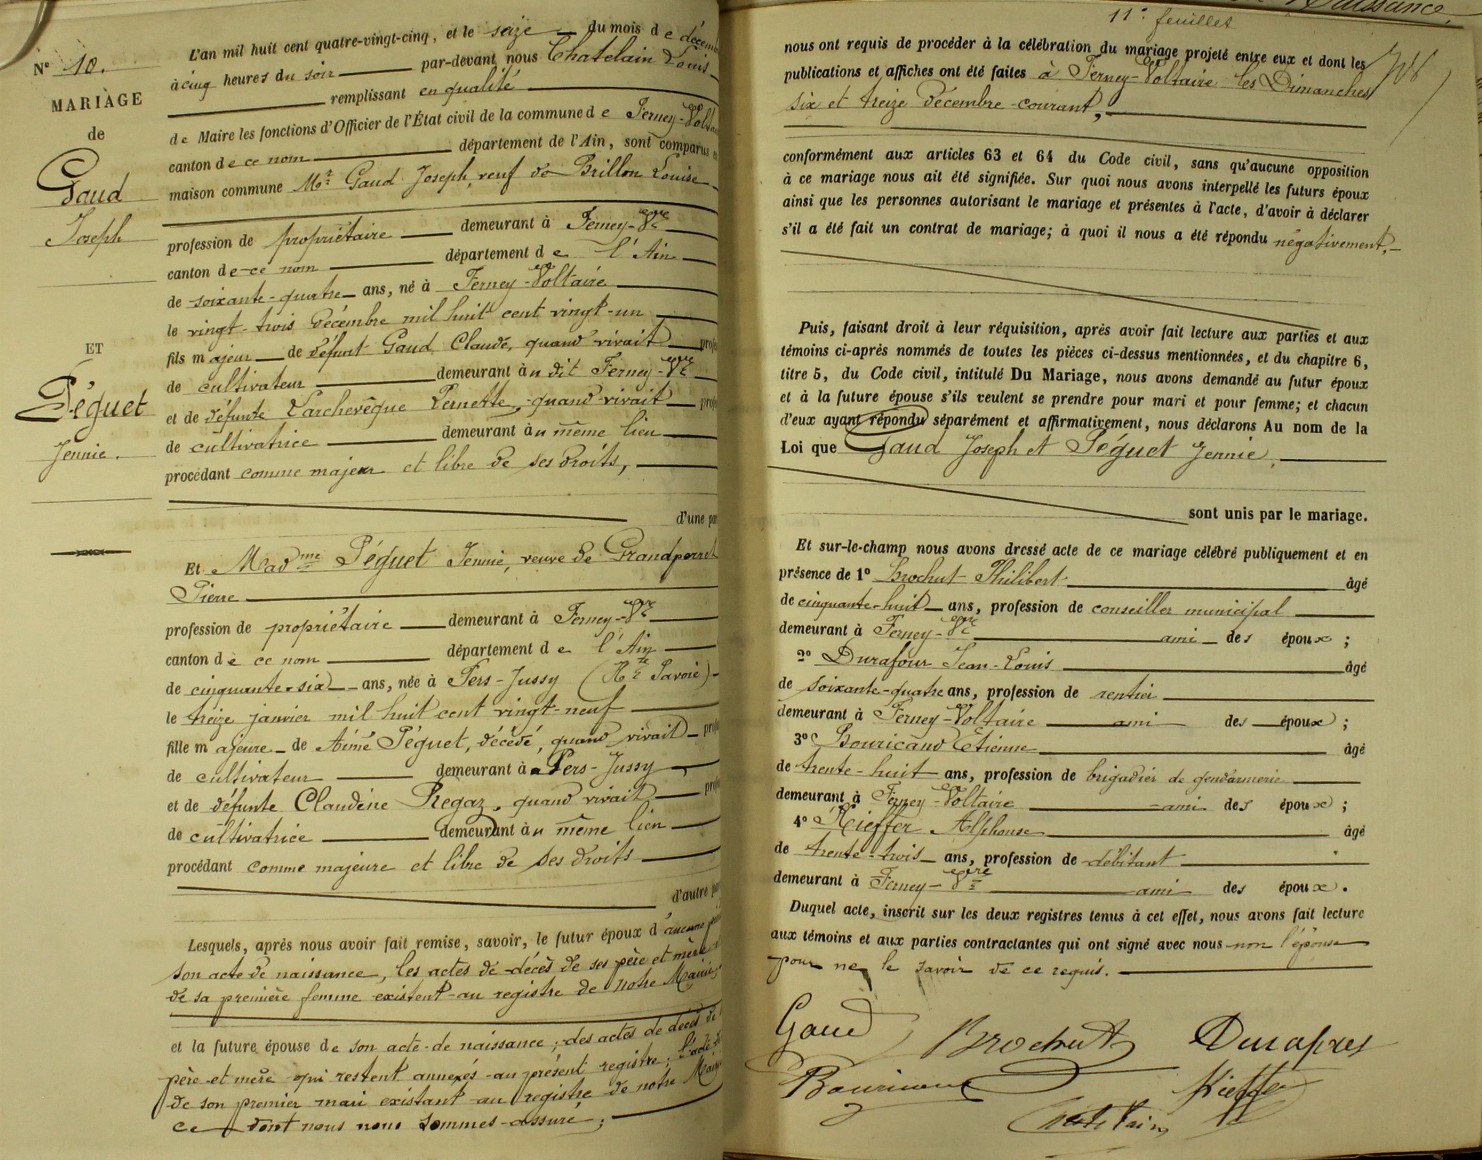 N° 10.
MARIAGE
de
Gaud
Joseph
ET
Péguet
Jennie.
L'an mil huit cent quatre-vingt-cinq, et le seize du mois de décem
à cinq heures du soir par-devant nous Chatelain Louis
remplissant en qualité
de Maire les fonctions d'Officier de l'État civil de la commune de Ferney-Volta
canton de ce nom département de l'Ain, sont comparus
maison commune Mr Gaud Joseph, veuf de Brillon Louise
profession de propriétaire demeurant à Ferney-Vre
canton de ce nom département de l'Ain
de soixante-quatre ans, né à Ferney-Voltaire
le vingt-trois Décembre mil huit cent vingt-un
fils majeur de défunt Gaud Claude, quand vivait profe
de cultivateur demeurant au dit Ferney-Vre
et de défunte Larchevêque Pernette, quand vivait profe
de cultivatrice demeurant au même lieu
procédant comme majeur et libre de ses droits,
d'une par
Et Madme Péguet Jennie, veuve de Grandperret
Pierre
profession de propriétaire demeurant à Ferney-Vre
canton de ce nom département de l'Ain
de cinquante-six ans, née à Pers-Jussy (Hte Savoie)
le treize janvier mil huit cent vingt-neuf
fille majeure de Aimé Péguet, décédé, quand vivait profe
de cultivateur demeurant à Pers-Jussy,
et de défunte Claudine Regaz, quand vivait profe
de cultivatrice demeurant au même lieu
procédant comme majeure et libre de ses droits
d'autre par
Lesquels, après nous avoir fait remise, savoir, le futur époux d'aucune
son acte de naissance, les actes de décès de ses père et mère
de sa première femme existent au registre de notre Mairie
et la future épouse de son acte de naissance; des actes de décès de
père et mère qui restent annexés au présent registre; l'acte de
de son premier mari existant au registre de notre Mairie
ce dont nous nous sommes assuré;
Naissance.
11e feuilles
nous ont requis de procéder à la célébration du mariage projeté entre eux et dont les
publications et affiches ont été faites à Ferney-Voltaire les Dimanches
six et treize Décembre courant,
conformément aux articles 63 et 64 du Code civil, sans qu'aucune opposition
à ce mariage nous ait été signifiée. Sur quoi nous avons interpellé les futurs époux
ainsi que les personnes autorisant le mariage et présentes à l'acte, d'avoir à déclarer
s'il a été fait un contrat de mariage; à quoi il nous a été répondu négativement.
Puis, faisant droit à leur réquisition, après avoir fait lecture aux parties et aux
témoins ci-après nommés de toutes les pièces ci-dessus mentionnées, et du chapitre 6,
titre 5, du Code civil, intitulé Du Mariage, nous avons demandé au futur époux
et à la future épouse s'ils veulent se prendre pour mari et pour femme; et chacun
d'eux ayant répondu séparément et affirmativement, nous déclarons Au nom de la
Loi que Gaud Joseph et Péguet Jennie,
sont unis par le mariage.
Et sur-le-champ nous avons dressé acte de ce mariage célébré publiquement et en
présence de 1° Brochut Philibert âgé
de cinquante-huit ans, profession de conseiller municipal
demeurant à Ferney-Vre ami des époux;
2° Durafour Jean-Louis âgé
de soixante-quatre ans, profession de rentier
demeurant à Ferney-Voltaire ami des époux;
3° Bouricand Etienne âgé
de trente-huit ans, profession de brigadier de gendarmerie
demeurant à Ferney-Voltaire ami des époux;
4° Kieffer Alphonse âgé
de trente-trois ans, profession de débitant
demeurant à Ferney-Vre ami des époux.
Duquel acte, inscrit sur les deux registres tenus à cet effet, nous avons fait lecture
aux témoins et aux parties contractantes qui ont signé avec nous non l'épouse
pour ne le savoir de ce requis.
Gaud Brochut Durafour
Bouricand Kieffer
Chatelain